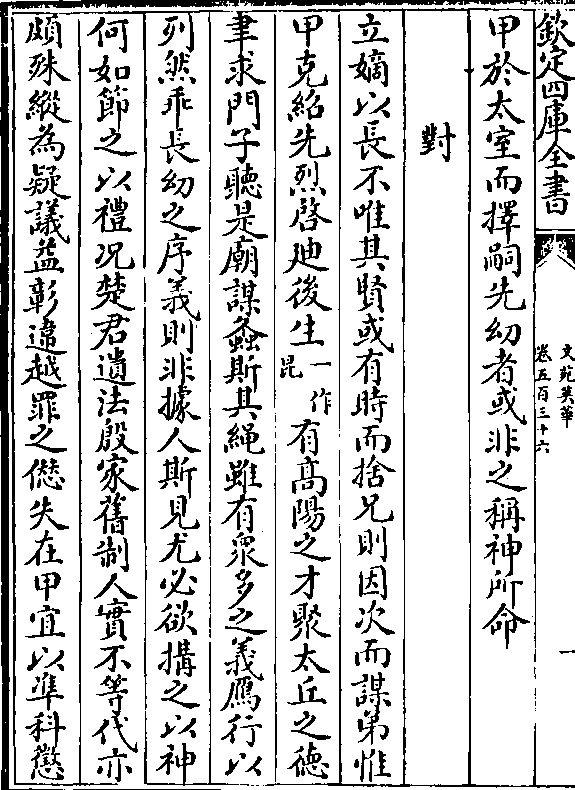 欽定四庫全書
文苑英華
卷五百三十六
一
甲於太室而擇嗣先幼者或非之稱神所命
對
立嫡以長不唯其賢或有時而捨兄則因次而謀弟惟
甲克紹先烈啓廸後生一作昆有髙陽之才聚太丘之徳
聿求門子聽是廟謀螽斯其繩雖有衆多之義鴈行以
列然乖長幼之序義則非據人斯見尤必欲搆之以神
何如節之以禮况楚君遺法殷家舊制人實不等代亦
頗殊縱為疑議益彰違越罪之愆失在甲宜以凖科懲